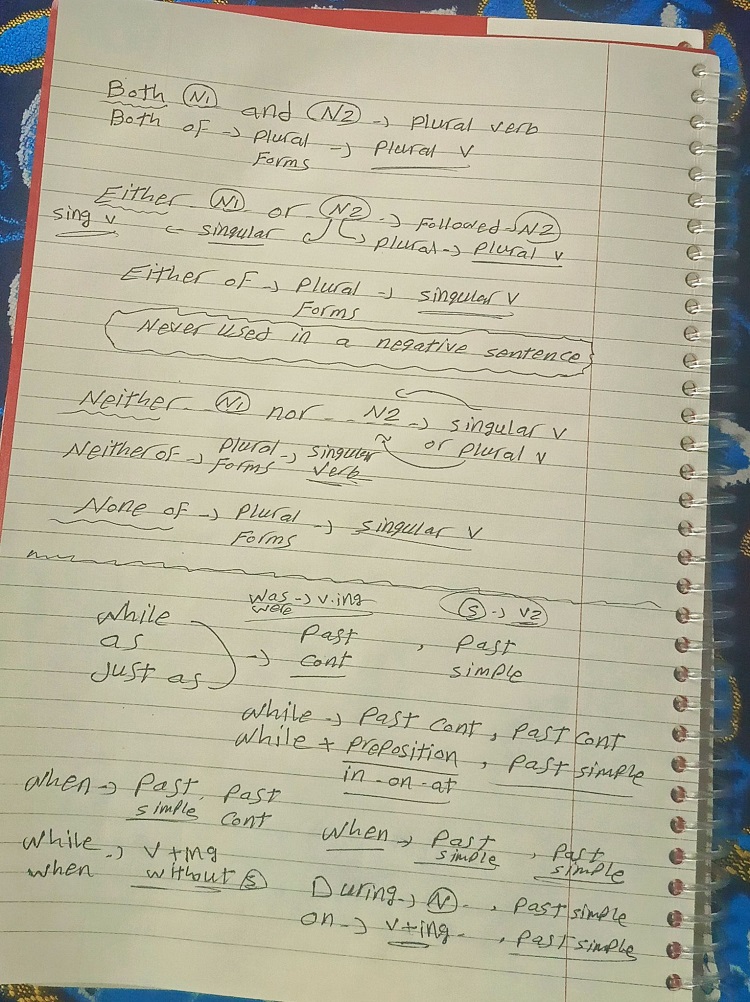 Both N1 and N2 → plural verb
Both of → plural Forms → plural v
Either N1 or N2 → Followed → N2
sing v ← singular ↲ ↳ plural → plural v
Either of → plural Forms → singular v
Never used in a negative sentence
Neither N1 nor N2 → singular v
or plural v
Neither of → plural Forms → singular verb
None of → plural Forms → singular v
was were → v.ing
S → v2
while
as
Just as
→ Past cont , Past simple
while → Past cont , Past cont
while + preposition , past simple
in - on - at
when → Past simple , Past cont
when → Past simple , Past simple
while when → v+ing without S
During → N , past simple
on → v+ing , past simple